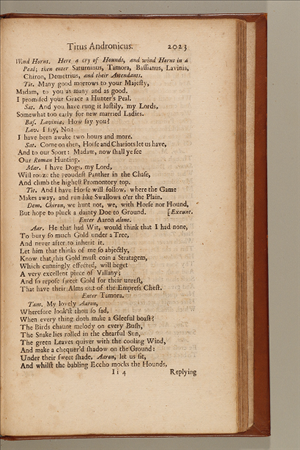 Titus Andronicus. 2023
Wind Horns. Here a cry of Hounds, and wind Horns in a
Peal; then enter Saturninus, Tamora, Bassianus, Lavinia,
Chiron, Demetrius, and their Attendants.
Tit. Many good morrows to your Majesty,
Madam, to you as many and as good.
I promised your Grace a Hunter's Peal.
Sat. And you have rung it lustily, my Lords,
Somewhat too early for new married Ladies.
Bas. Lavinia, How say you?
Lav. I say, No:
I have been awake two hours and more.
Sat. Come on then, Horse and Chariots let us have,
And to our Sport: Madam, now shall ye see
Our Roman Hunting.
Mar. I have Dogs, my Lord,
Will rouze the proudest Panther in the Chase,
And climb the highest Promontory top.
Tit. And I have Horse will follow, where the Game
Makes away, and run like Swallows o'er the Plain.
Dem. Chiron, we hunt not, we, with Horse nor Hound,
But hope to pluck a dainty Doe to Ground. [Exeunt.
Enter Aaron alone.
Aar. He that had Wit, would think that I had none,
To bury so much Gold under a Tree,
And never after to inherit it.
Let him that thinks of me so abjectly,
Know that this Gold must coin a Stratagem,
Which cunningly effected, will beget
A very excellent piece of Villany;
And so repose sweet Gold for their unrest,
That have their Alms out of the Empress Chest.
Enter Tamora.
Tam. My lovely Aaron,
Wherefore look'st thou so sad,
When every thing doth make a Gleeful boast?
The Birds chaunt melody on every Bush,
The Snake lies rolled in the chearful Sun,
The green Leaves quiver with the cooling Wind,
And make a chequer'd shadow on the Ground:
Under their sweet shade, Aaron, let us sit,
And whilst the babling Eccho mocks the Hounds,
I i 4 Replying